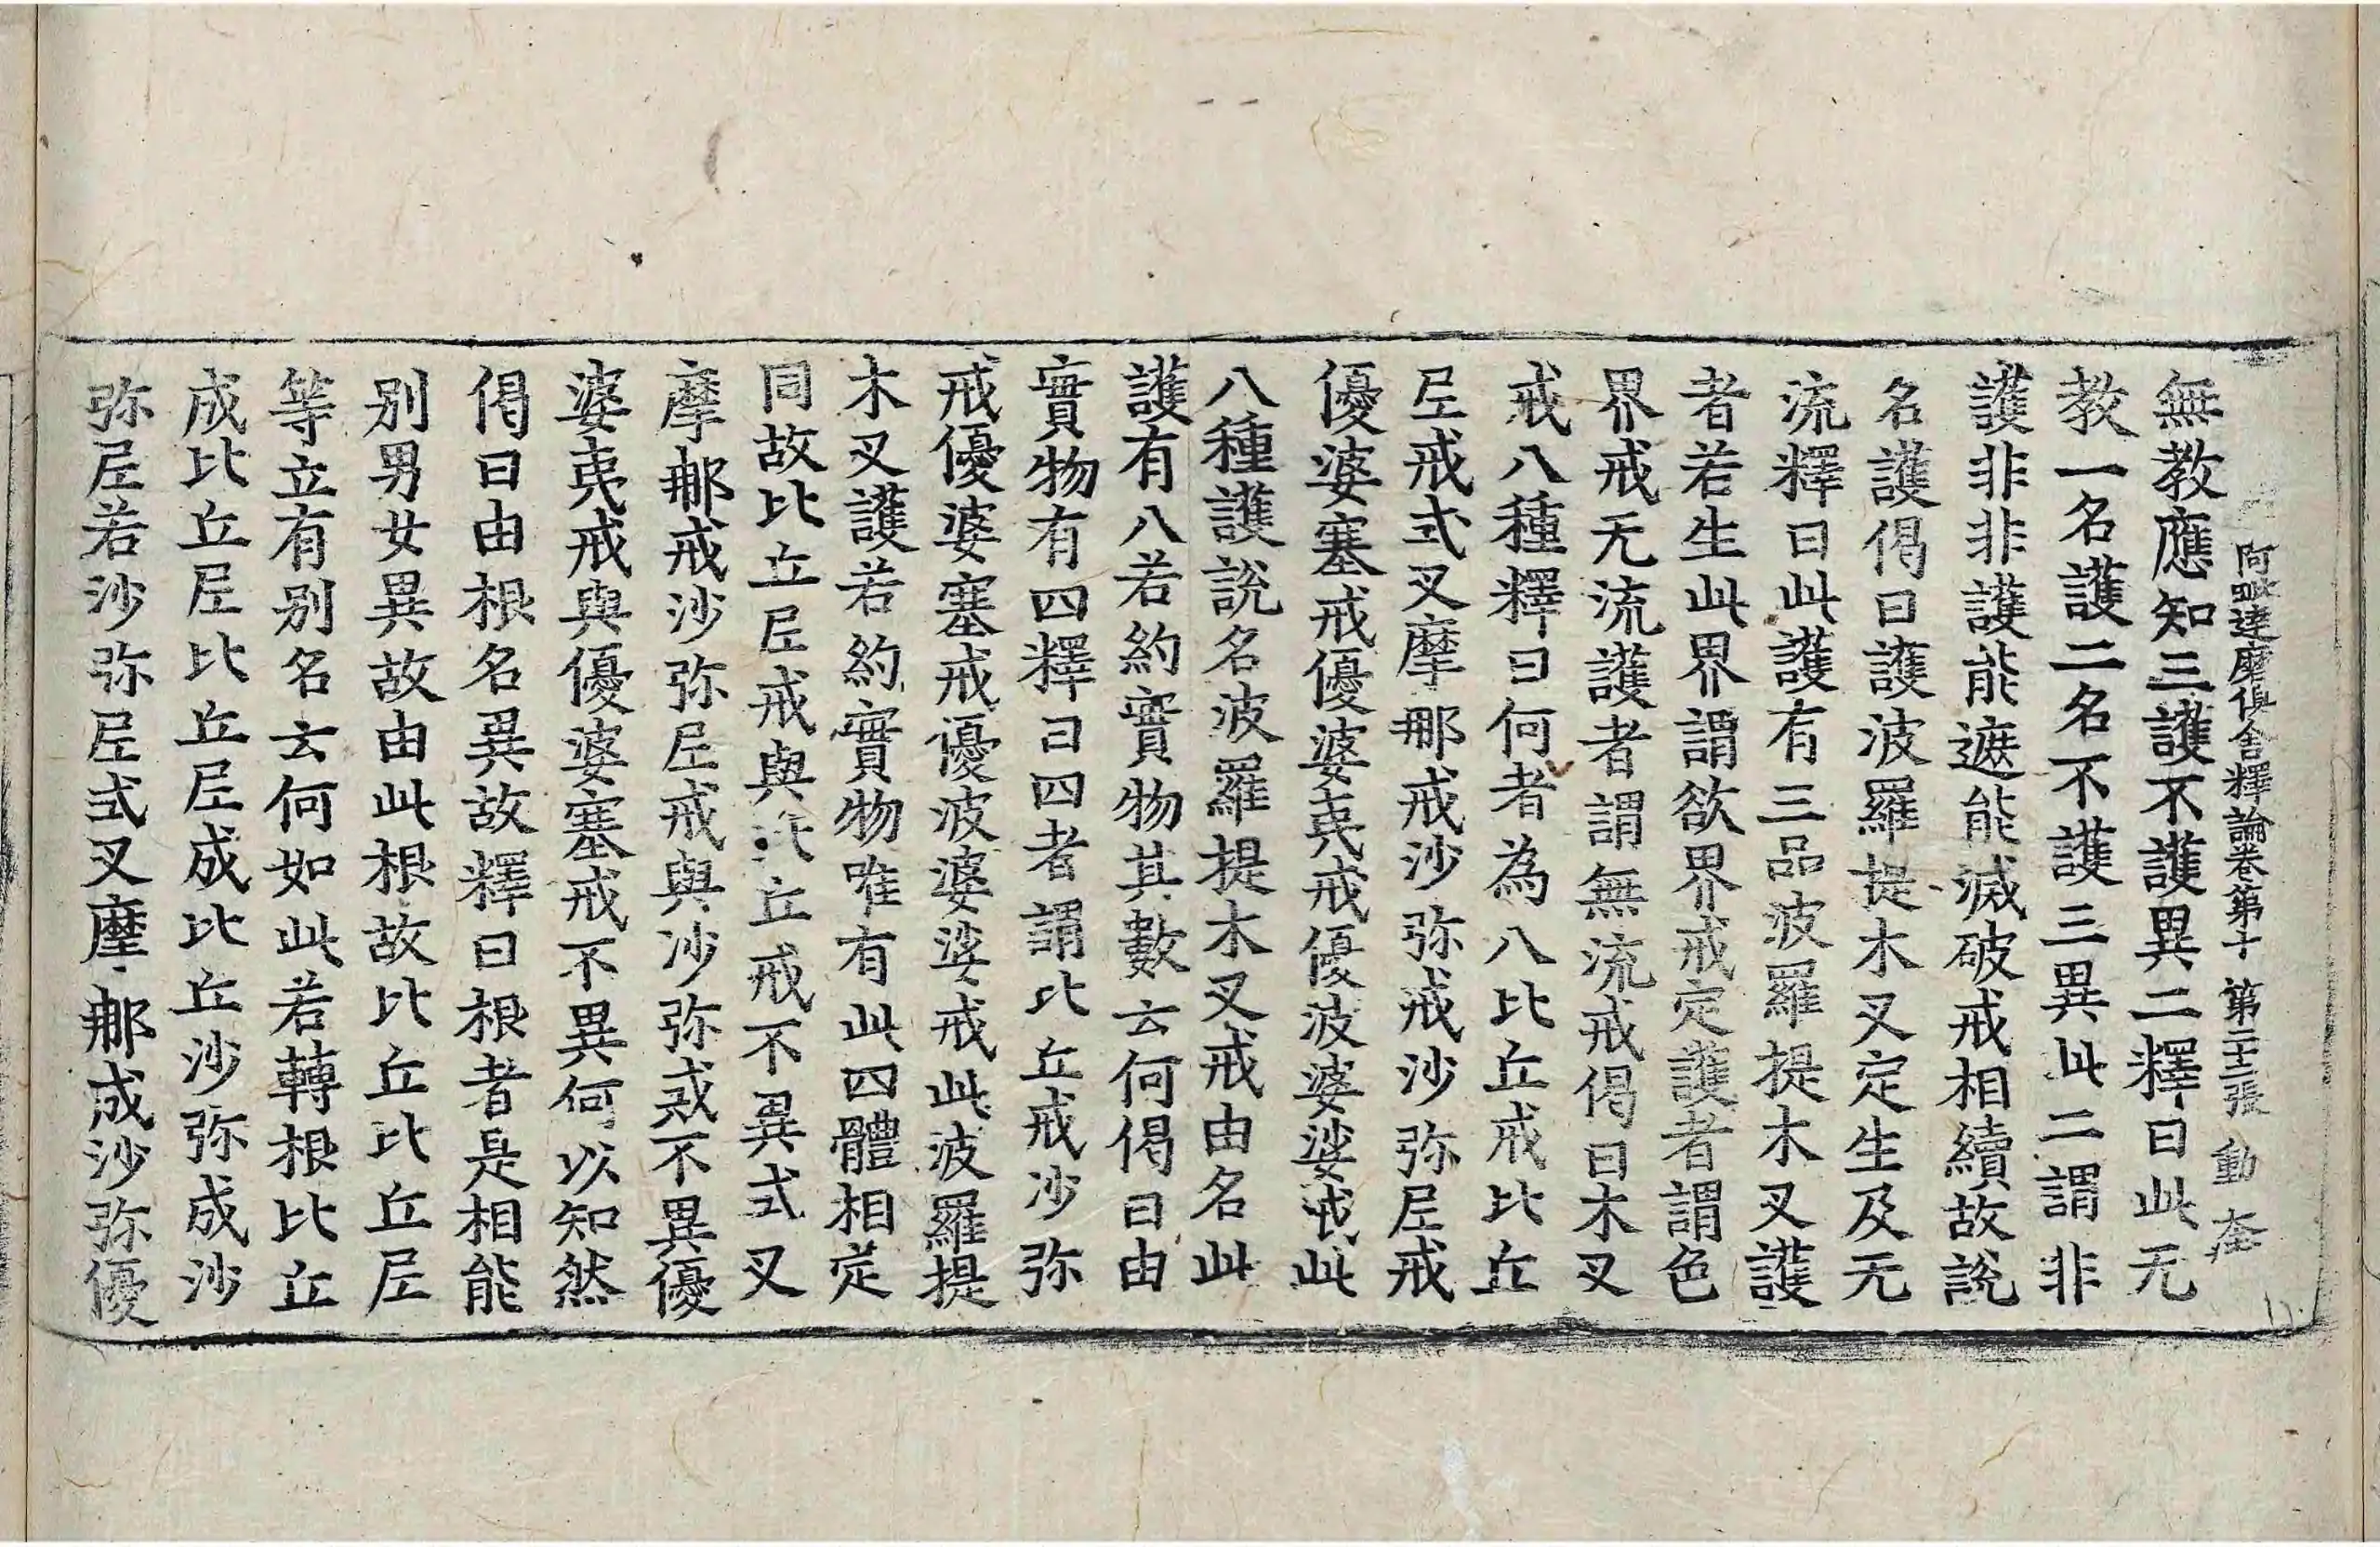 阿毗達磨俱舍釋論卷第十　第二十二張　動
無教應知三護不護異二釋曰此无
教一名護二名不護三異此二謂非
護非非護能遮能滅破戒相續故說
名護偈曰護波羅提木叉定生及无
流釋曰此護有三品波羅提木叉護
者若生此界謂欲界戒定護者謂色
界戒无流護者謂無流戒偈曰木叉
戒八種釋曰何者為八比丘戒比丘
尼戒式叉摩那戒沙弥戒沙弥尼戒
優婆塞戒優婆夷戒優波婆娑戒此
八種護說名波羅提木叉戒由名此
護有八若約實物其數云何偈曰由
實物有四釋曰四者謂比丘戒沙弥
戒優婆塞戒優波婆娑戒此波羅提
木叉護若約實物唯有此四體相定
同故比丘尼戒與比丘戒不異式叉
摩那戒沙弥尼戒與沙弥戒不異優
婆夷戒與優婆塞戒不異何以知然
偈曰由根名異故釋曰根者是相能
别男女異故由此根故比丘比丘尼
等立有别名云何如此若轉根比丘
成比丘尼比丘尼成比丘沙弥成沙
弥尼若沙弥尼式叉摩那成沙弥優